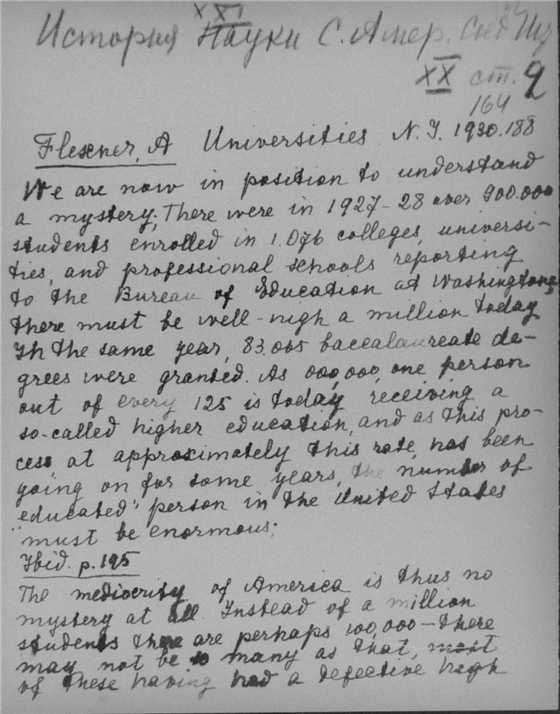 XI
История Науки С. Амер. Соед. Ш
XX ст. 2
164
Flexner, A Universities N. Y. 1930. 188
We are now in position to understand
a mystery. There were in 1927-28 over 900.000
students enrolled in 1.076 colleges, universi-
ties, and professional schools reporting
to the Bureau of Education at Washington,
there must be well-nigh a million today
In the same year, 83.065 baccalaureate de-
grees were granted. As 000,000, one person
out of every 125 is today receiving a
so-called higher education, and as this pro-
cess at approximately this rate, has been
going on for some years, the number of
"educated" person in the United States
must be enormous;
Ibid. p. 195
The mediocrity of America is thus no
mystery at all. Instead of a million
students there are perhaps 100,000 - there
may not be so many as that, most
of these having had a defective high